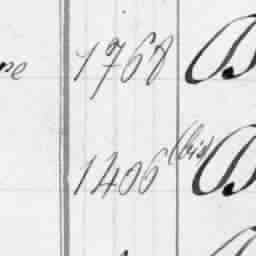 re 1768 B
1406 (bis) B